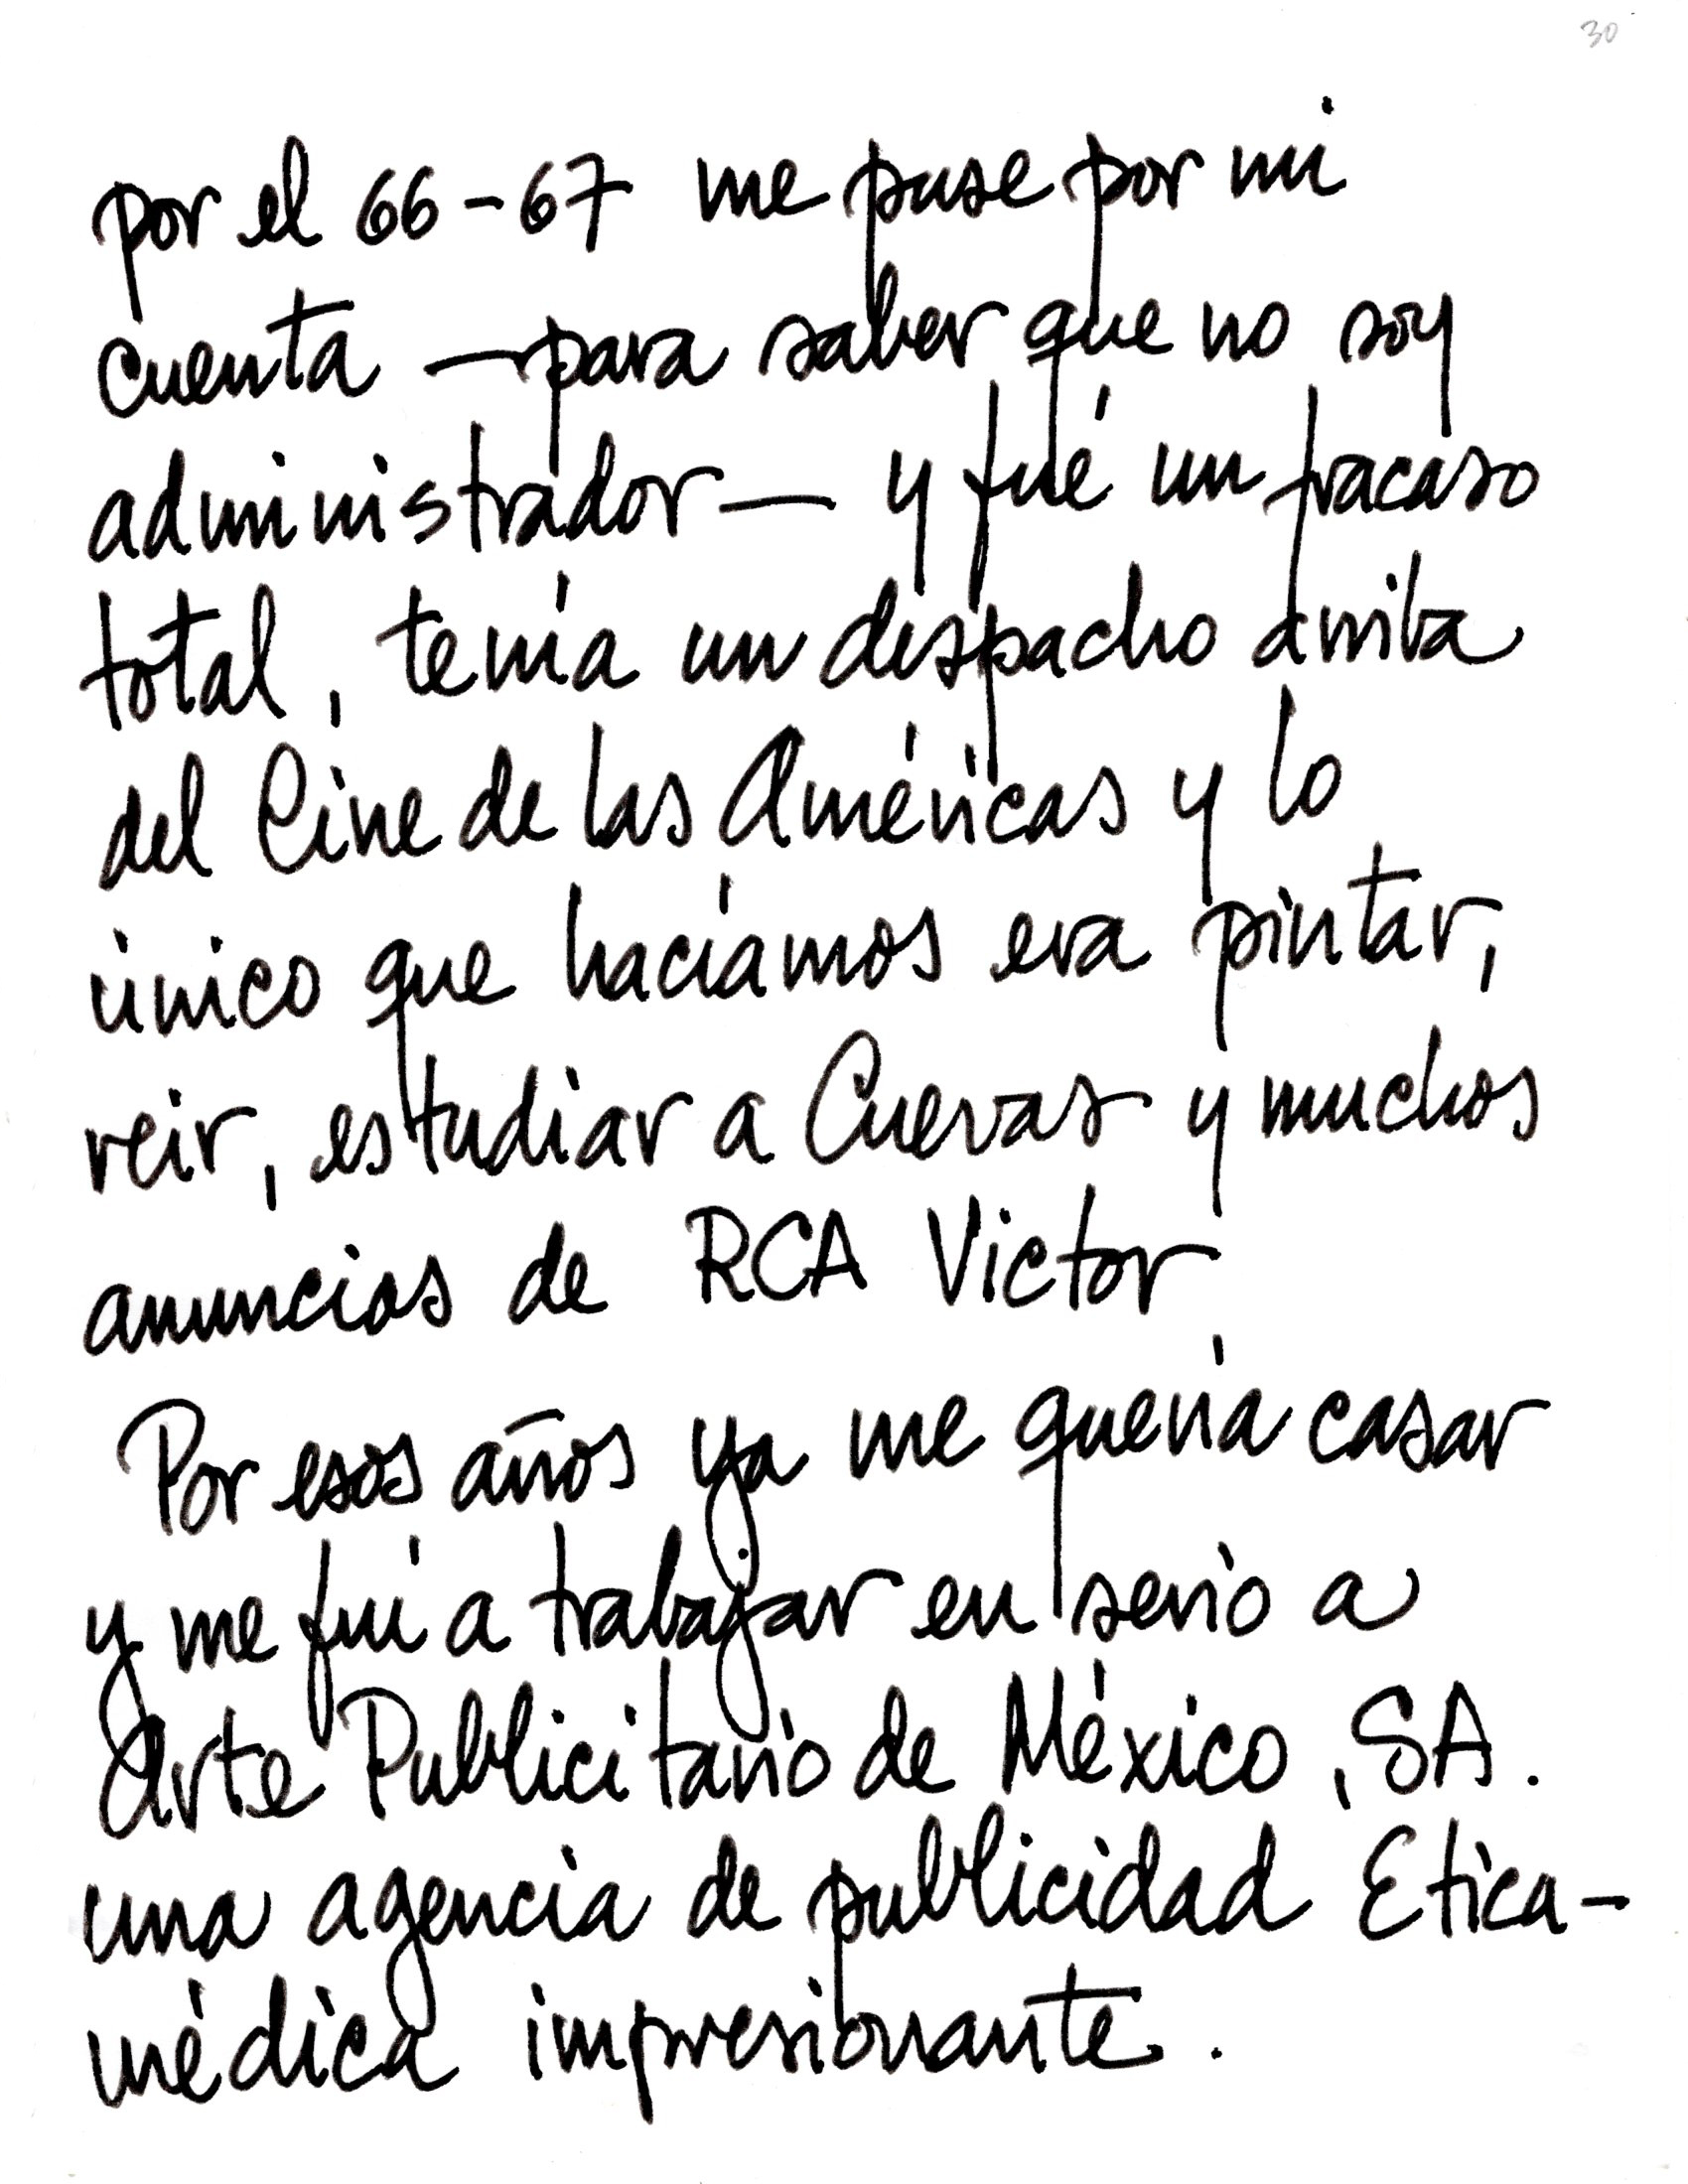 30
por el 66-67 me puse por mi
cuenta — para saber que no soy
administrador — y fué un fracaso
total, tenía un despacho arriba
del Cine de las Américas y lo
único que hacíamos era pintar,
reir, estudiar a Cuevas y muchos
anuncios de RCA Victor
Por esos años ya me quería casar
y me fuí a trabajar en serio a
Arte Publicitario de México, SA.
una agencia de publicidad Etica-
médica impresionante.